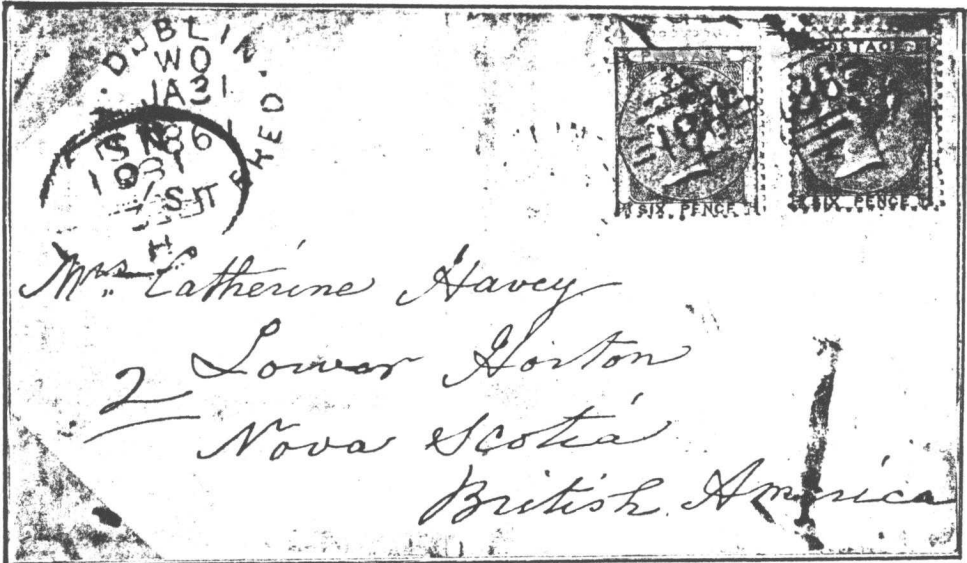 DUBLIN.
WO
JA31
186
SHED
POSTAGE
SIX PENCE
SIX PENCE
Mrs. Catherine Havey
Lower Horton
2
Nova Scotia
British America